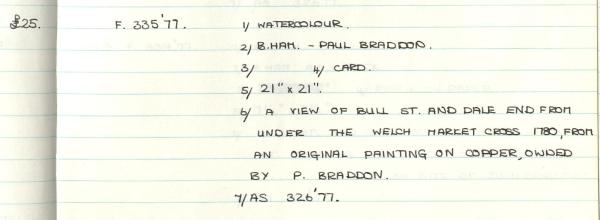 £25. F. 335'77. 1/ WATERCOLOUR.
2/ B.HAM. - PAUL BRADDON.
3/ 4/ CARD.
5/ 21" x 21".
6/ A VIEW OF BULL ST. AND DALE END FROM
UNDER THE WELCH MARKET CROSS 1780, FROM
AN ORIGINAL PAINTING ON COPPER, OWDED
BY P. BRADDON.
7/ AS 326'77.